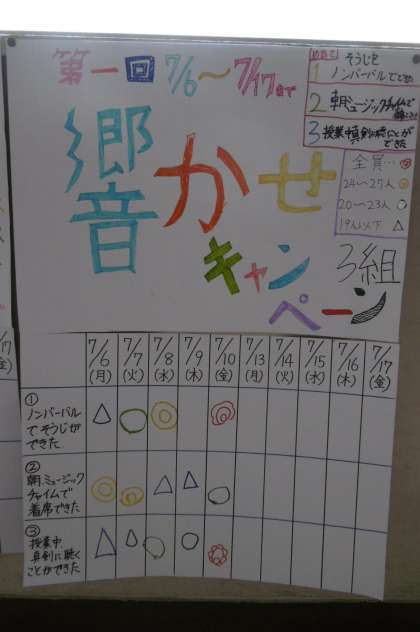 第一回 7/6～7/17まで
響かせ
キャンペーン
3組
めあて
1 そうじを
ノンバーバルでできた
2 朝ミュージックチャイムで
3 授業中真剣に聴くことが
できた
全員…
24～27人
20～23人
19人以下 △
7/6 (月) 7/7 (火) 7/8 (水) 7/9 (木) 7/10 (金) 7/13 (月) 7/14 (火) 7/15 (水) 7/16 (木) 7/17 (金)
①
ノンバーバル
でそうじが
できた
②
朝ミュージック
チャイムで
着席できた
③
授業中
真剣に聴く
ことができた